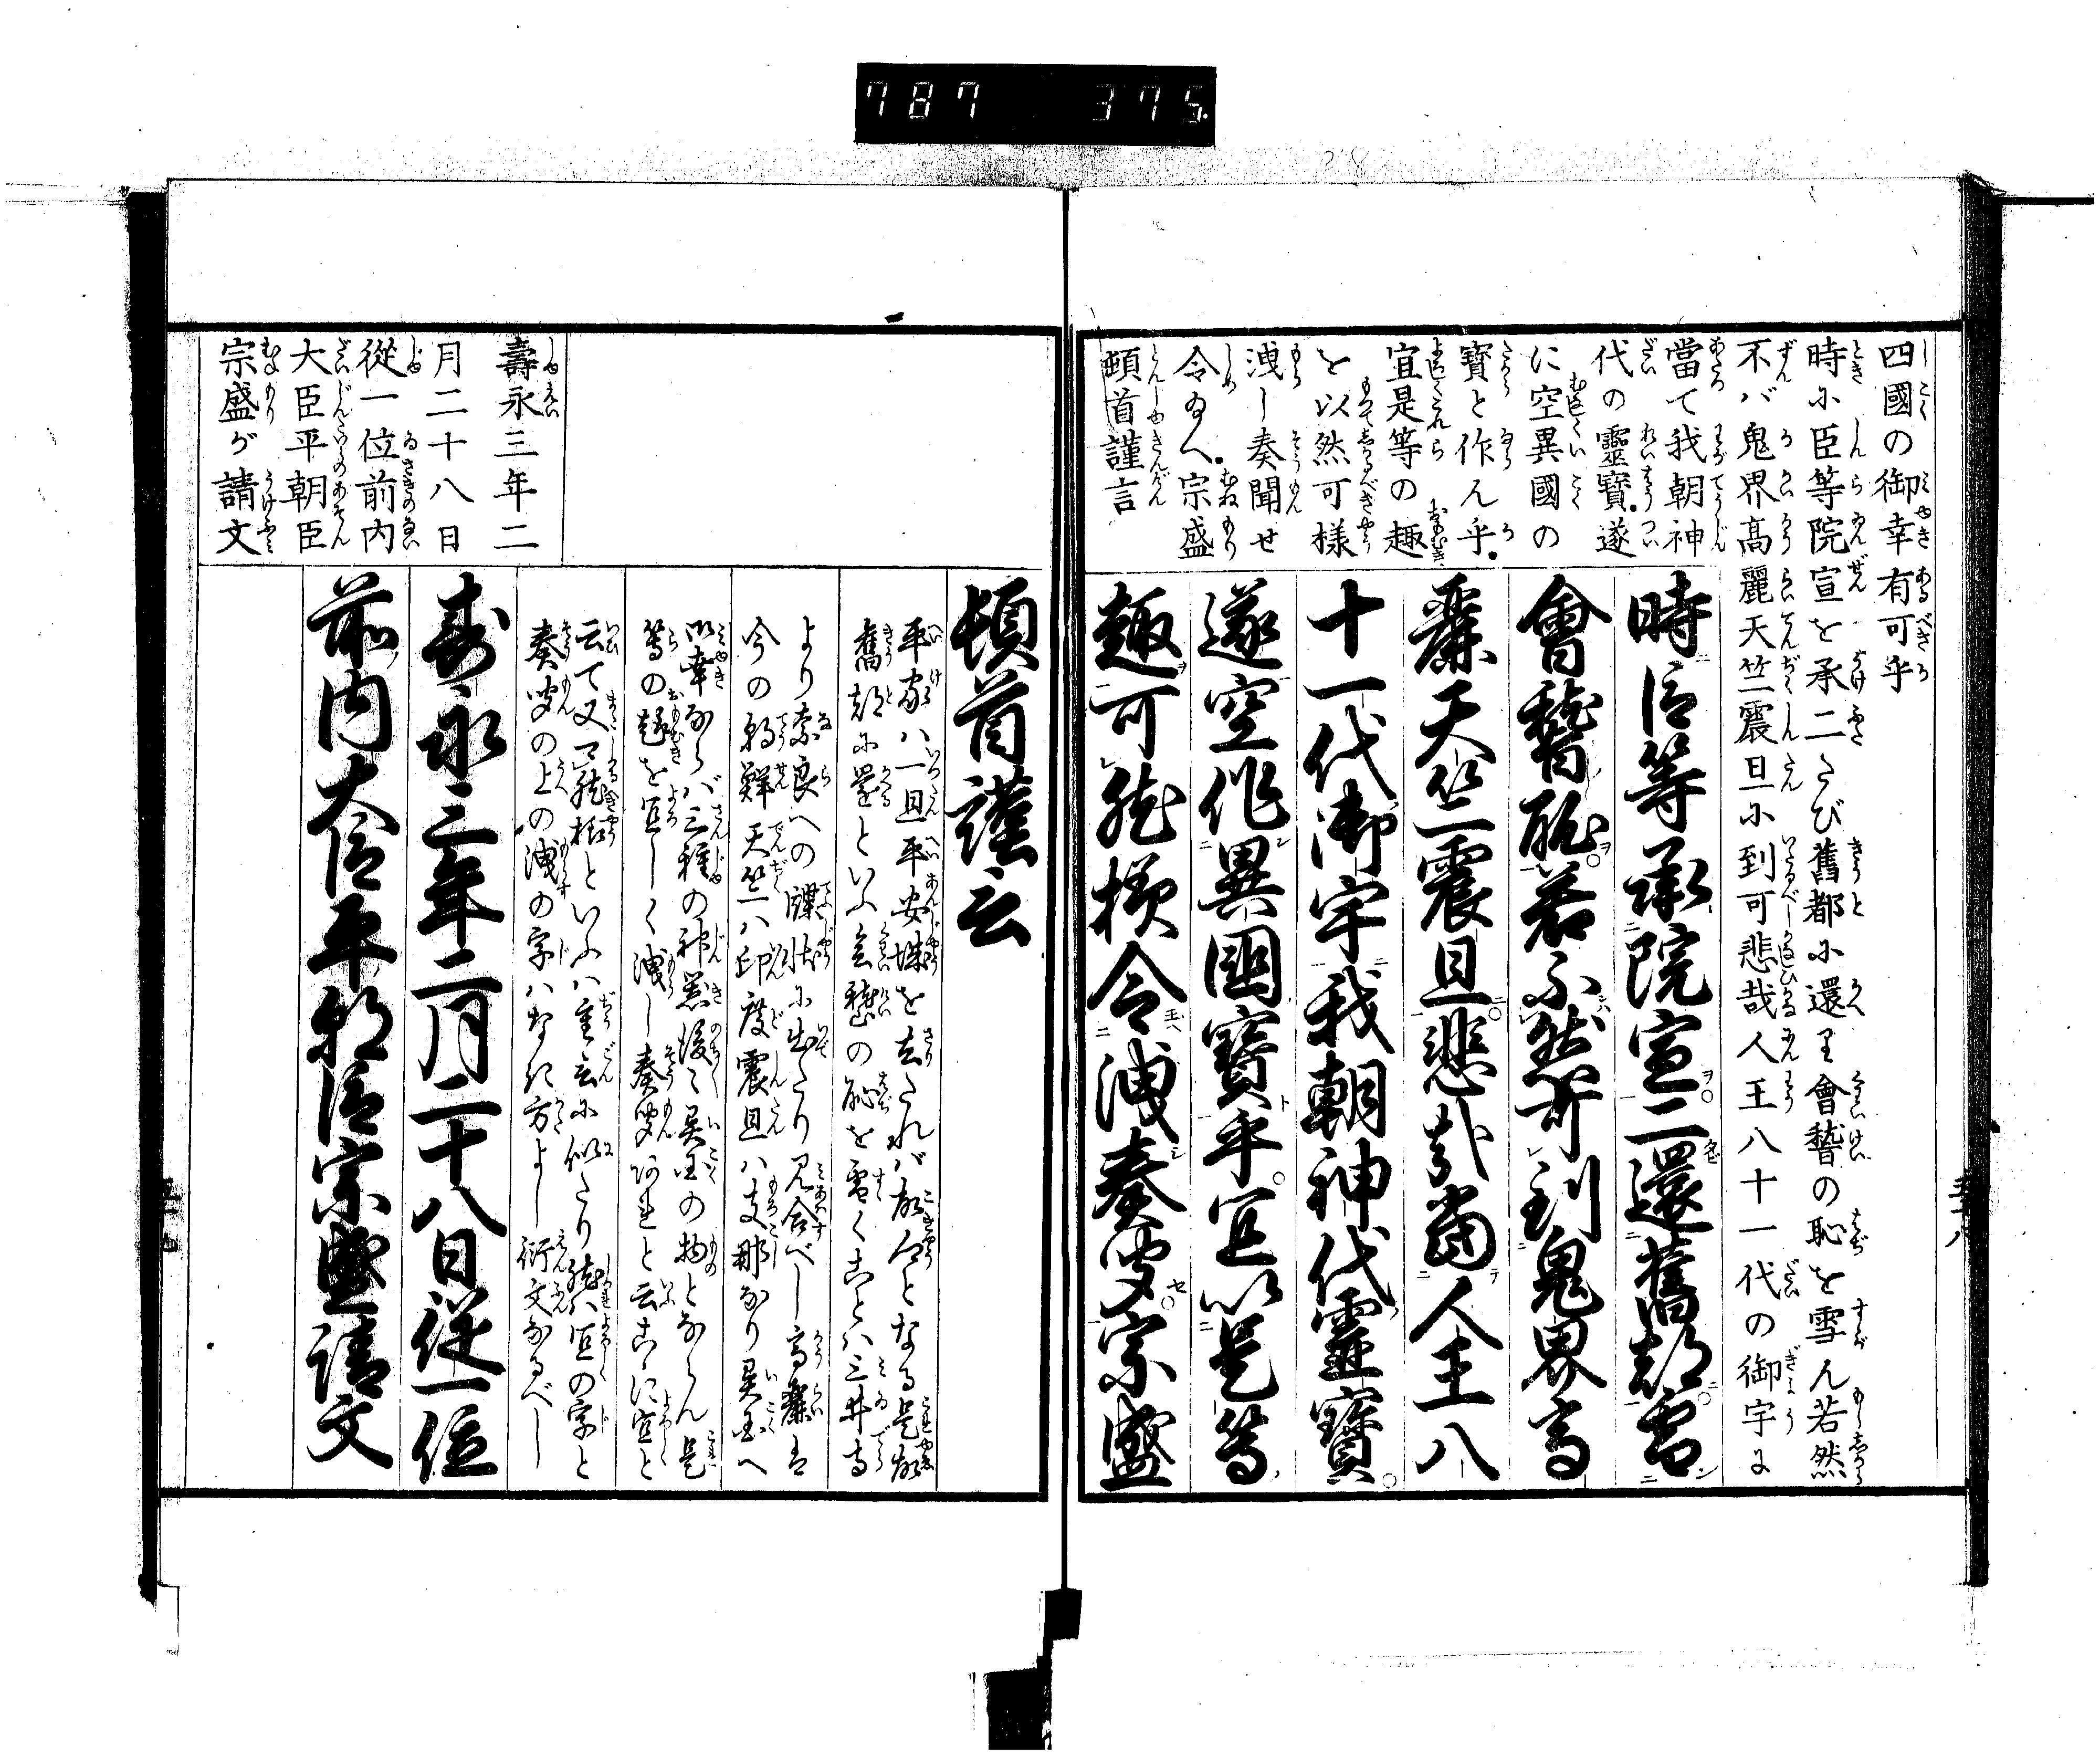 787 375
四國の御幸有可乎
時に臣等院宣を承二たび舊都に還り會稽の恥を雪ん若然
不バ鬼界髙麗天竺震旦に到可悲哉人王八十一代の御宇に
當て我朝神
代の靈寶遂
に空異國の
寶と作ん乎
宜是等の趣
を以然可様
洩し奏聞せ
令給へ宗盛
頓首謹言
時臣等承院宣二還舊都雪
會稽恥若不然可到鬼界高
麗天竺震旦悲哉當人王八
十一代御宇我朝神代靈寶
遂空作異國寶乎宜以是等
趣可然様令洩奏聞宗盛
頓首謹言
平家ハ一旦平安城を去たれバ故今となる是故
舊都に還といふ会稽の恥を雪くことハ三井寺
より奈良への牒状に出たり見合すべし高麗は
今の朝鮮天竺ハ印度震旦ハ支那なり異国へ
御幸ならバ三種の神器後々異国の物とならん是
等の趣を宜しく洩し奏聞あれと云こゝに宜と
云て又可然様といふハ重言に似たり然ハ宜の字と
奏聞の上の洩の字ハなき方よし衍文なるべし
壽永三年二
月二十八日
從一位前内
大臣平朝臣
宗盛が請文
寿永三年二月二十八日従一位
前内大臣平朝臣宗盛請文